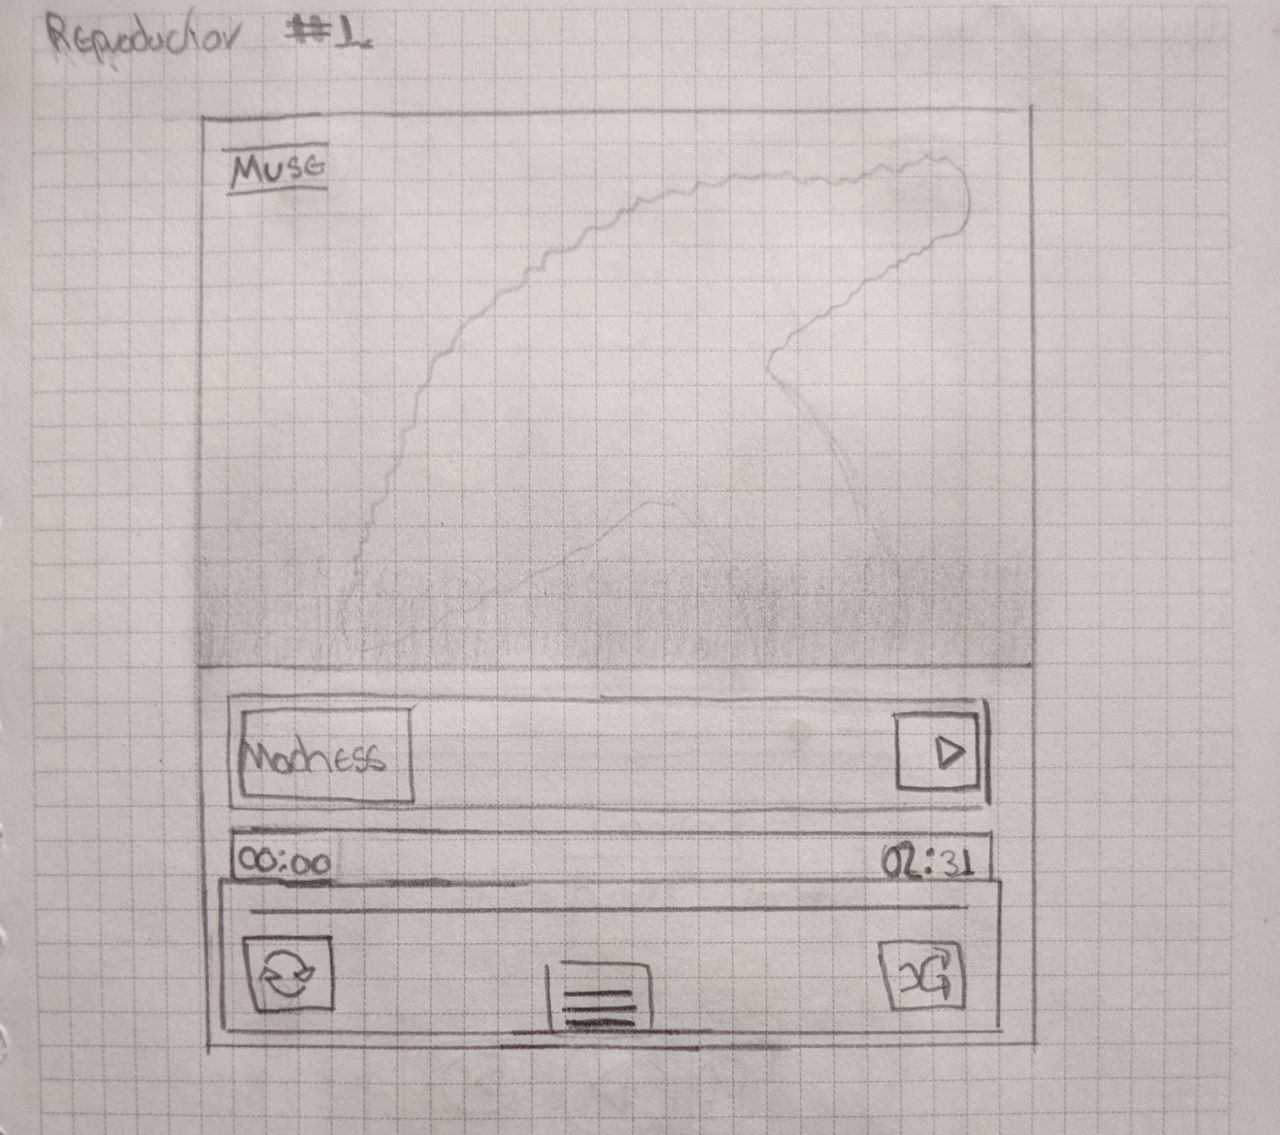 Reproductor #1
Muse
Madness
00:00
02:31